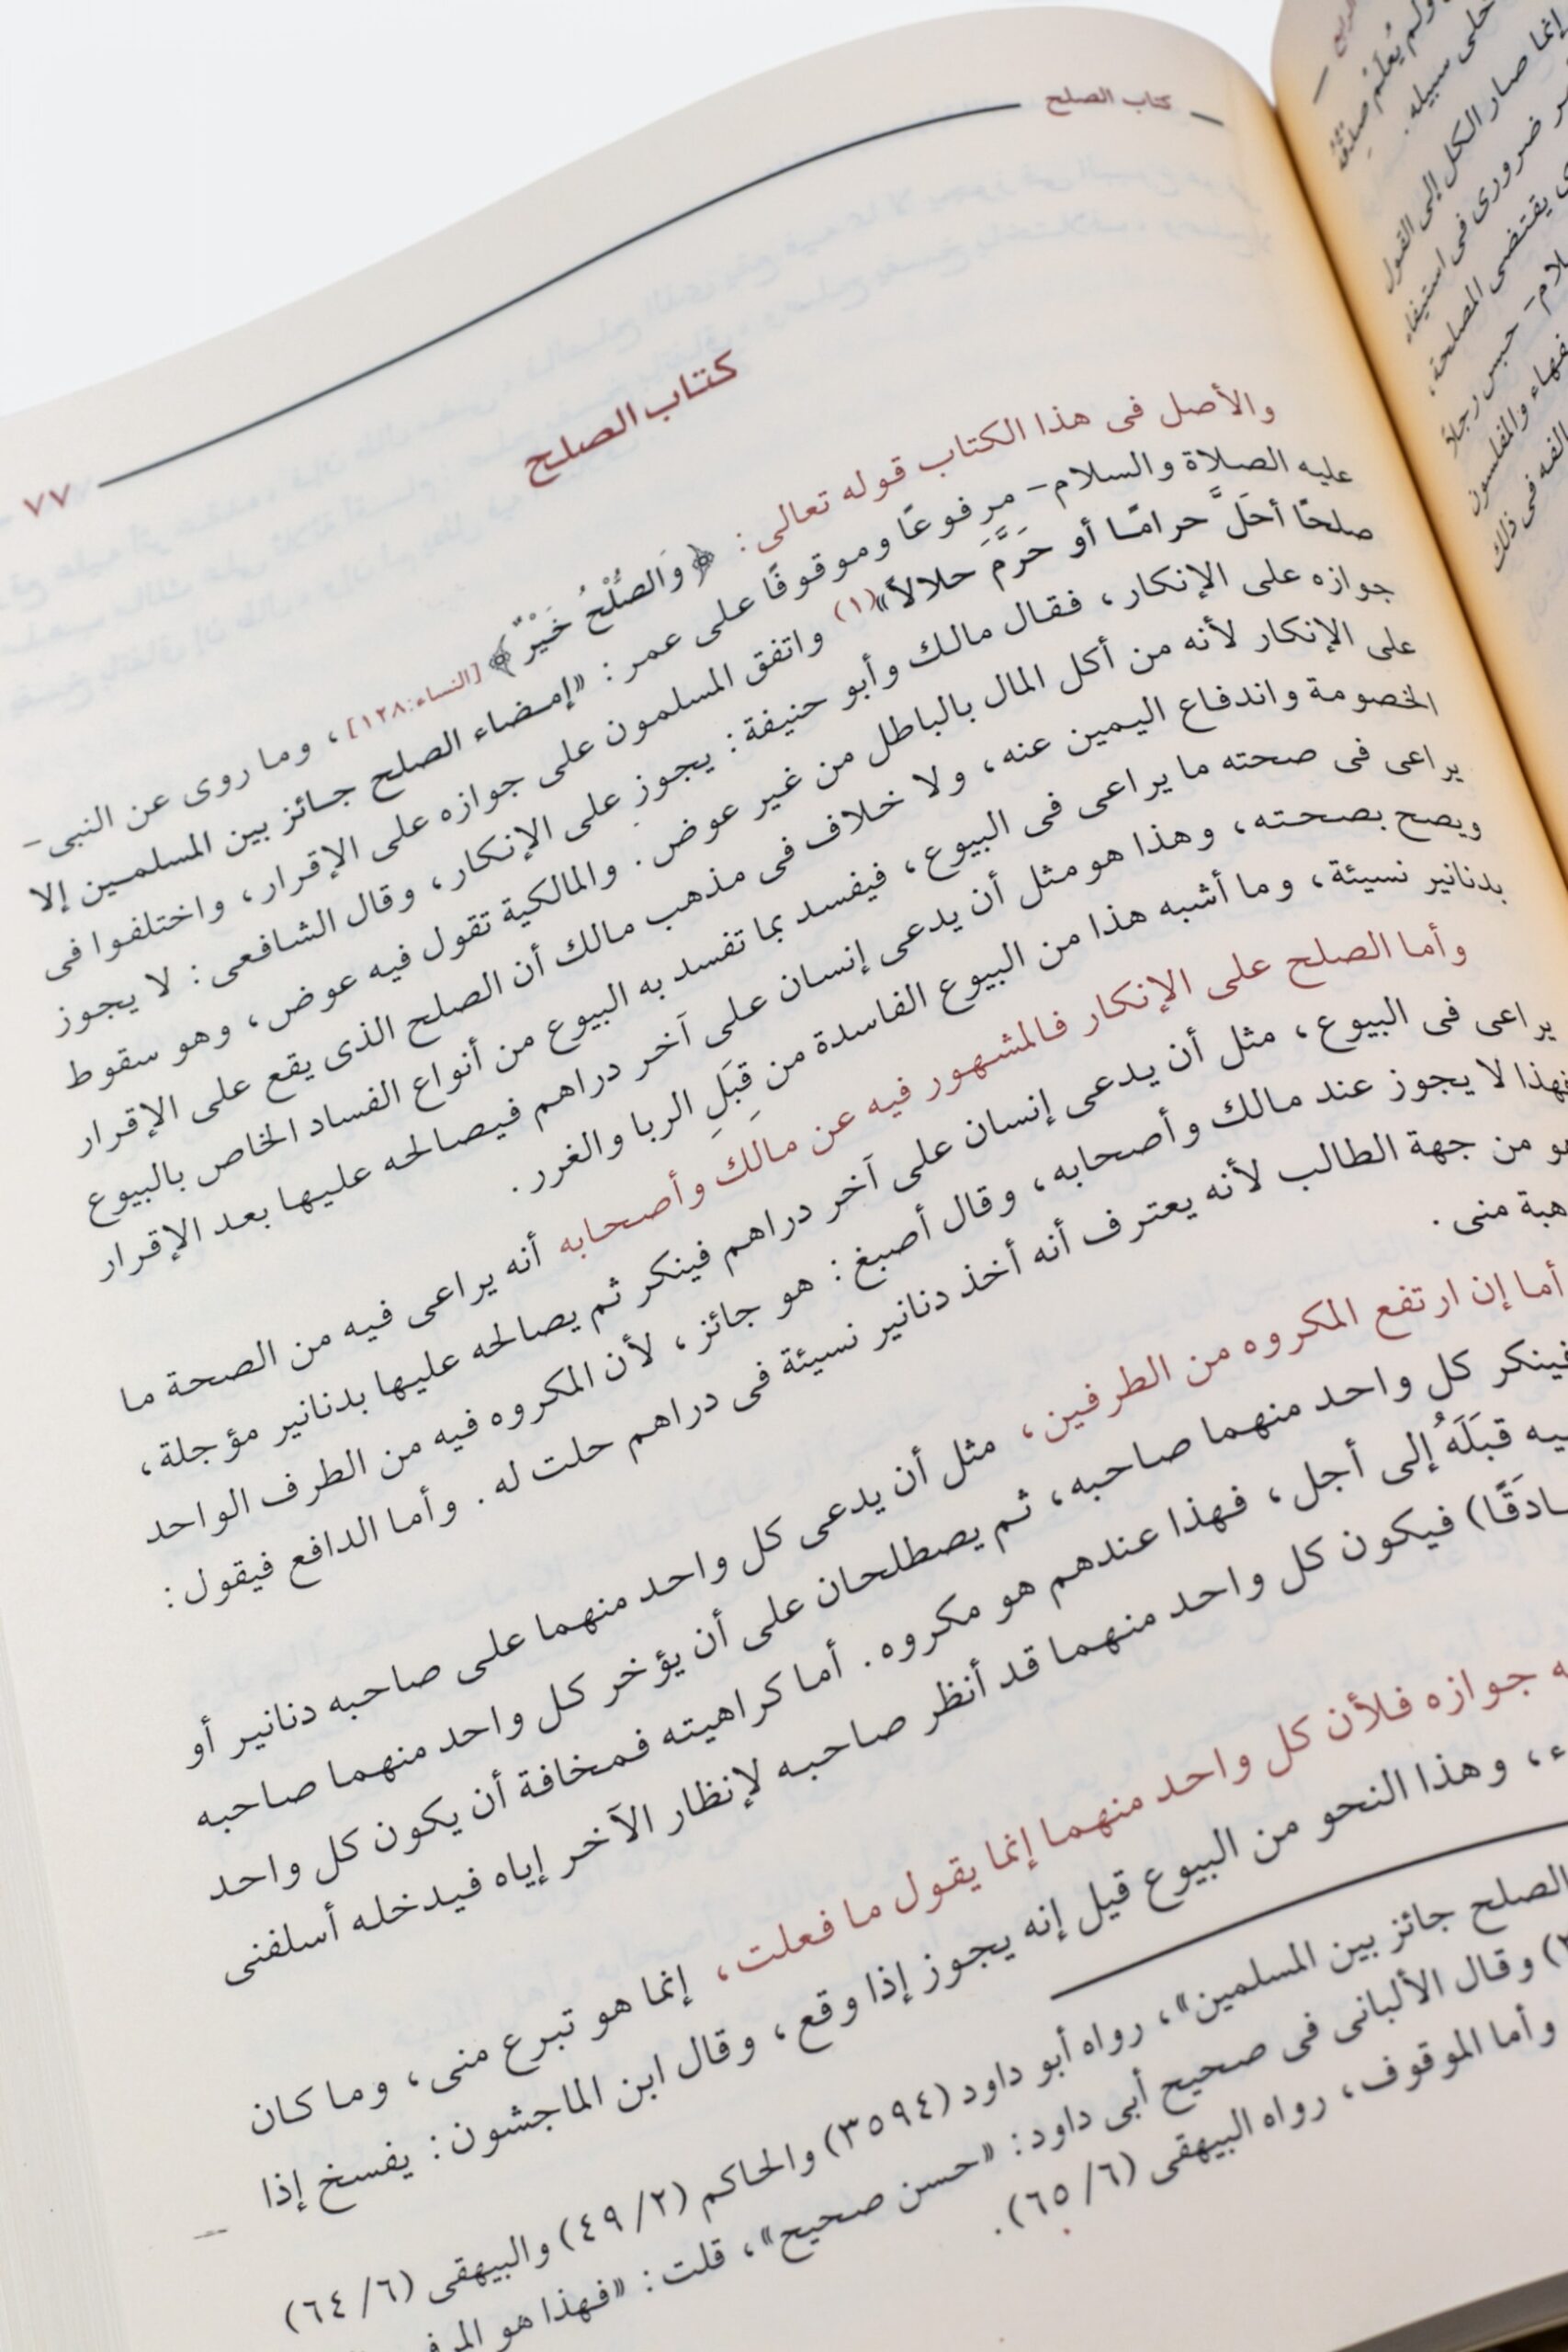 كتاب الصلح
٧٧
كتاب الصلح
والأصل فى هذا الكتاب قوله تعالى: ﴿وَالصُّلْحُ خَيْرٌ﴾ [النساء:١٢٨]، وما روى عن النبى-
عليه الصلاة والسلام- مرفوعًا وموقوفًا على عمر: «إمضاء الصلح جائز بين المسلمين إلا
صلحًا أحَلَّ حرامًا أو حَرَّمَ حلالاً»(١) واتفق المسلمون على جوازه على الإقرار، واختلفوا فى
جوازه على الإنكار، فقال مالك وأبو حنيفة: يجوز على الإنكار، وقال الشافعى: لا يجوز
على الإنكار لأنه من أكل المال بالباطل من غير عوض. والمالكية تقول فيه عوض، وهو سقوط
الخصومة واندفاع اليمين عنه، ولا خلاف فى مذهب مالك أن الصلح الذى يقع على الإقرار
يراعى فى صحته ما يراعى فى البيوع، فيفسد بما تفسد به البيوع من أنواع الفساد الخاص بالبيوع
ويصح بصحته، وهذا هو مثل أن يدعى إنسان على آخر دراهم فيصالحه عليها بعد الإقرار
بدنانير نسيئة، وما أشبه هذا من البيوع الفاسدة من قِبَلِ الربا والغرر.
وأما الصلح على الإنكار فالمشهور فيه عن مالك وأصحابه أنه يراعى فيه من الصحة ما
يراعى فى البيوع، مثل أن يدعى إنسان على آخر دراهم فينكر ثم يصالحه عليها بدنانير مؤجلة،
فهذا لا يجوز عند مالك وأصحابه، وقال أصبغ: هو جائز، لأن المكروه فيه من الطرف الواحد
من جهة الطالب لأنه يعترف أنه أخذ دنانير نسيئة فى دراهم حلت له. وأما الدافع فيقول:
هبة منى.
أما إن ارتفع المكروه من الطرفين، مثل أن يدعى كل واحد منهما على صاحبه دنانير أو
فينكر كل واحد منهما صاحبه، ثم يصطلحان على أن يؤخر كل واحد منهما صاحبه
قبَلَهُ إلى أجل، فهذا عندهم هو مكروه. أما كراهيته فمخافة أن يكون كل واحد
فيكون كل واحد منهما قد أنظر صاحبه لإنظار الآخر إياه فيدخله أسلفنى
جوازه فلأن كل واحد منهما إنما يقول ما فعلت، إنما هو تبرع منى، وما كان
وهذا النحو من البيوع قيل إنه يجوز إذا وقع، وقال ابن الماجشون: يفسخ إذا
الصلح جائز بين المسلمين»، رواه أبو داود (٣٥٩٤) والحاكم (٤٩/٢) والبيهقى (٦٤/٦)
وقال الألبانى فى صحيح أبى داود: «حسن صحيح»، قلت: «فهذا هو
وأما الموقوف، رواه البيهقى (٦٥/٦).
ولم يُعلَمْ صدقه
خلى سبيله.
إنما صار الكل إلى القول
ضرورى فى استيفاء
يقتضى المصلحة،
حبس رجلاً
والمفلسون
فى ذلك